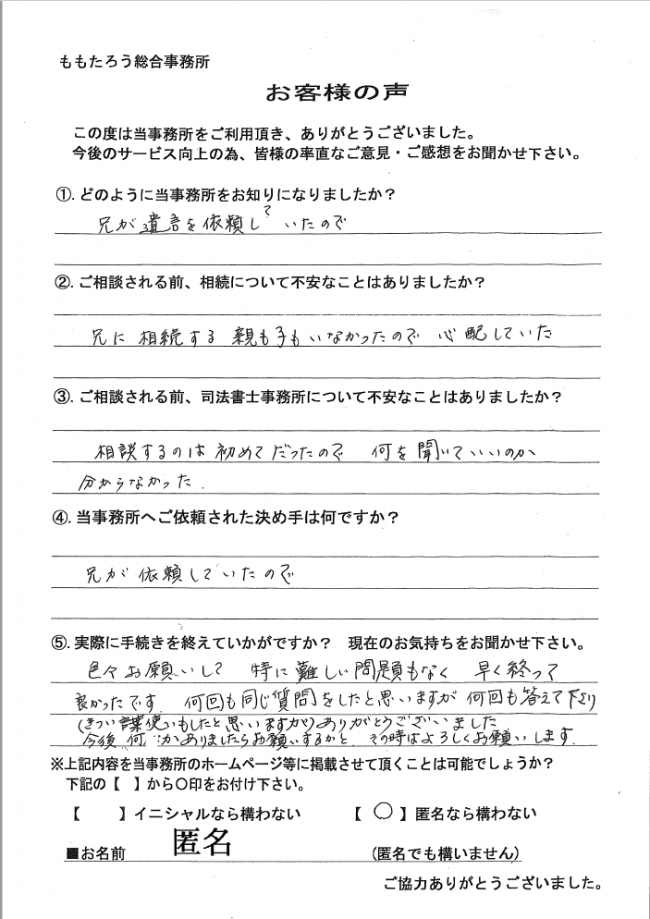 ももたろう総合事務所
お客様の声
この度は当事務所をご利用頂き、ありがとうございました。
今後のサービス向上の為、皆様の率直なご意見・ご感想をお聞かせ下さい。
①. どのように当事務所をお知りになりましたか？
兄が遺言を依頼していたので
②. ご相談される前、相続について不安なことはありましたか？
兄に相続する親も子もいなかったので 心配していた
③. ご相談される前、司法書士事務所について不安なことはありましたか？
相談するのは初めてだったので 何を聞いていいのか
分からなかった.
④. 当事務所へご依頼された決め手は何ですか？
兄が依頼していたので
⑤. 実際に手続きを終えていかがですか？ 現在のお気持ちをお聞かせ下さい。
色々お願いして 特に難しい問題もなく 早く終って
良かったです. 何回も同じ質問をしたと思いますが 何回も答えて下さり
(きつい言葉使いもしたと思いますが)ありがとうございました
今後 何かありましたらお願いするかと その時はよろしくお願いします.
※上記内容を当事務所のホームページ等に掲載させて頂くことは可能でしょうか？
下記の【 】から○印をお付け下さい。
【 】イニシャルなら構わない 【 ○ 】匿名なら構わない
■お名前 匿名 (匿名でも構いません)
ご協力ありがとうございました。